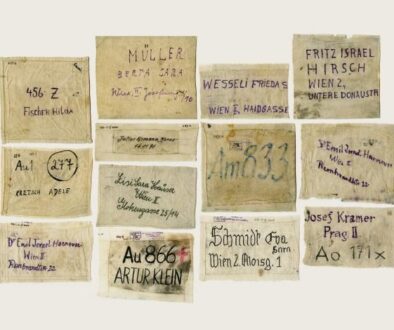 456 Z
Fischer Hilda
MÜLLER
BERTA SARA
Wien, II
WESSELI FRIEDA S
WIEN II, HAIDGASSE
FRITZ ISRAEL
HIRSCH
WIEN 2,
UNTERE DONAUSTR
Au1 277
KRETSCH ADELE
Lisi Sara
Wien II
25/14
Am 833
Dr Emil Israel
Wien II
Rembrandtstr. 22
Dr Emil Israel
Wien II
Rembrandtstr. 22
Au 866
ARTUR KLEIN
Schmidt Eva
Sara
Wien 2 Aloisg. 1
Josef Kramer
Prag II
Ao 171x